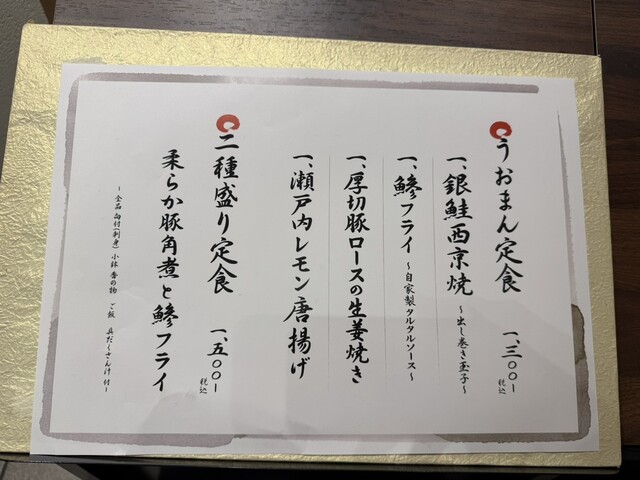 うおまん定食 一、三〇〇ー 税込
一、銀鮭西京焼 ～出し巻き玉子～
一、鯵フライ ～自家製タルタルソース～
一、厚切豚ロースの生姜焼き
一、瀬戸内レモン唐揚げ
二種盛り定食 一、五〇〇ー 税込
柔らか豚角煮と鯵フライ
～全品 向付(刺身) 小鉢 香の物 ご飯 具だくさん汁 付～